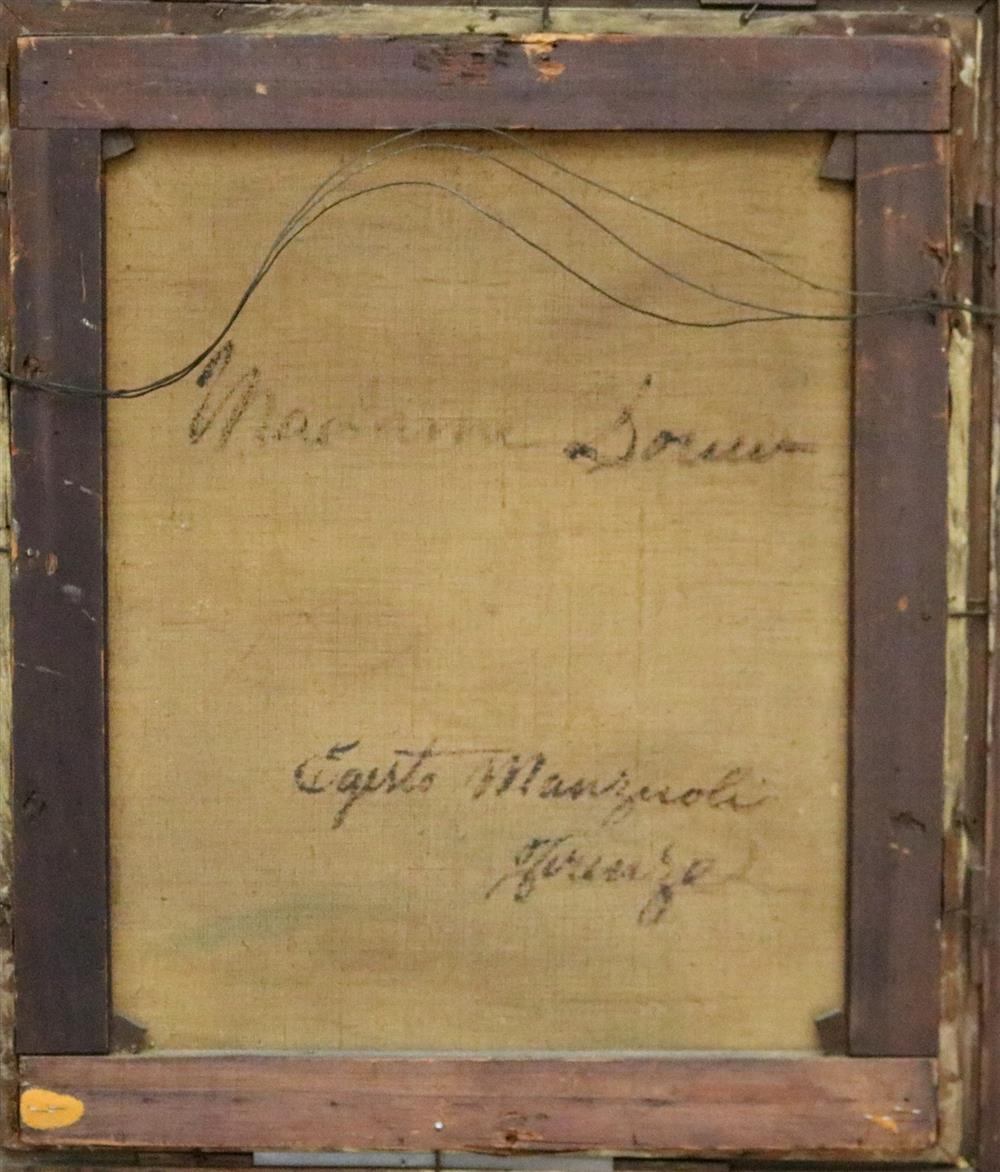 Madame
Egisto Manzuoli
Firenze